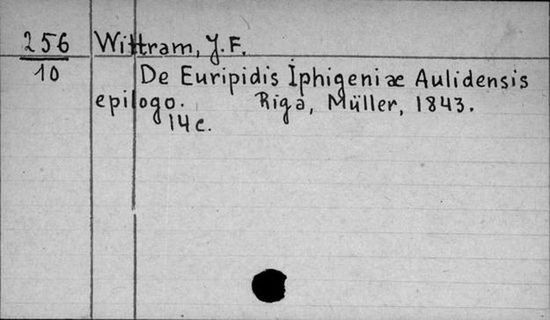 256
10
Wittram, J. F.
De Euripidis Iphigeniæ Aulidensis
epilogo. Riga, Müller, 1843.
14 c.